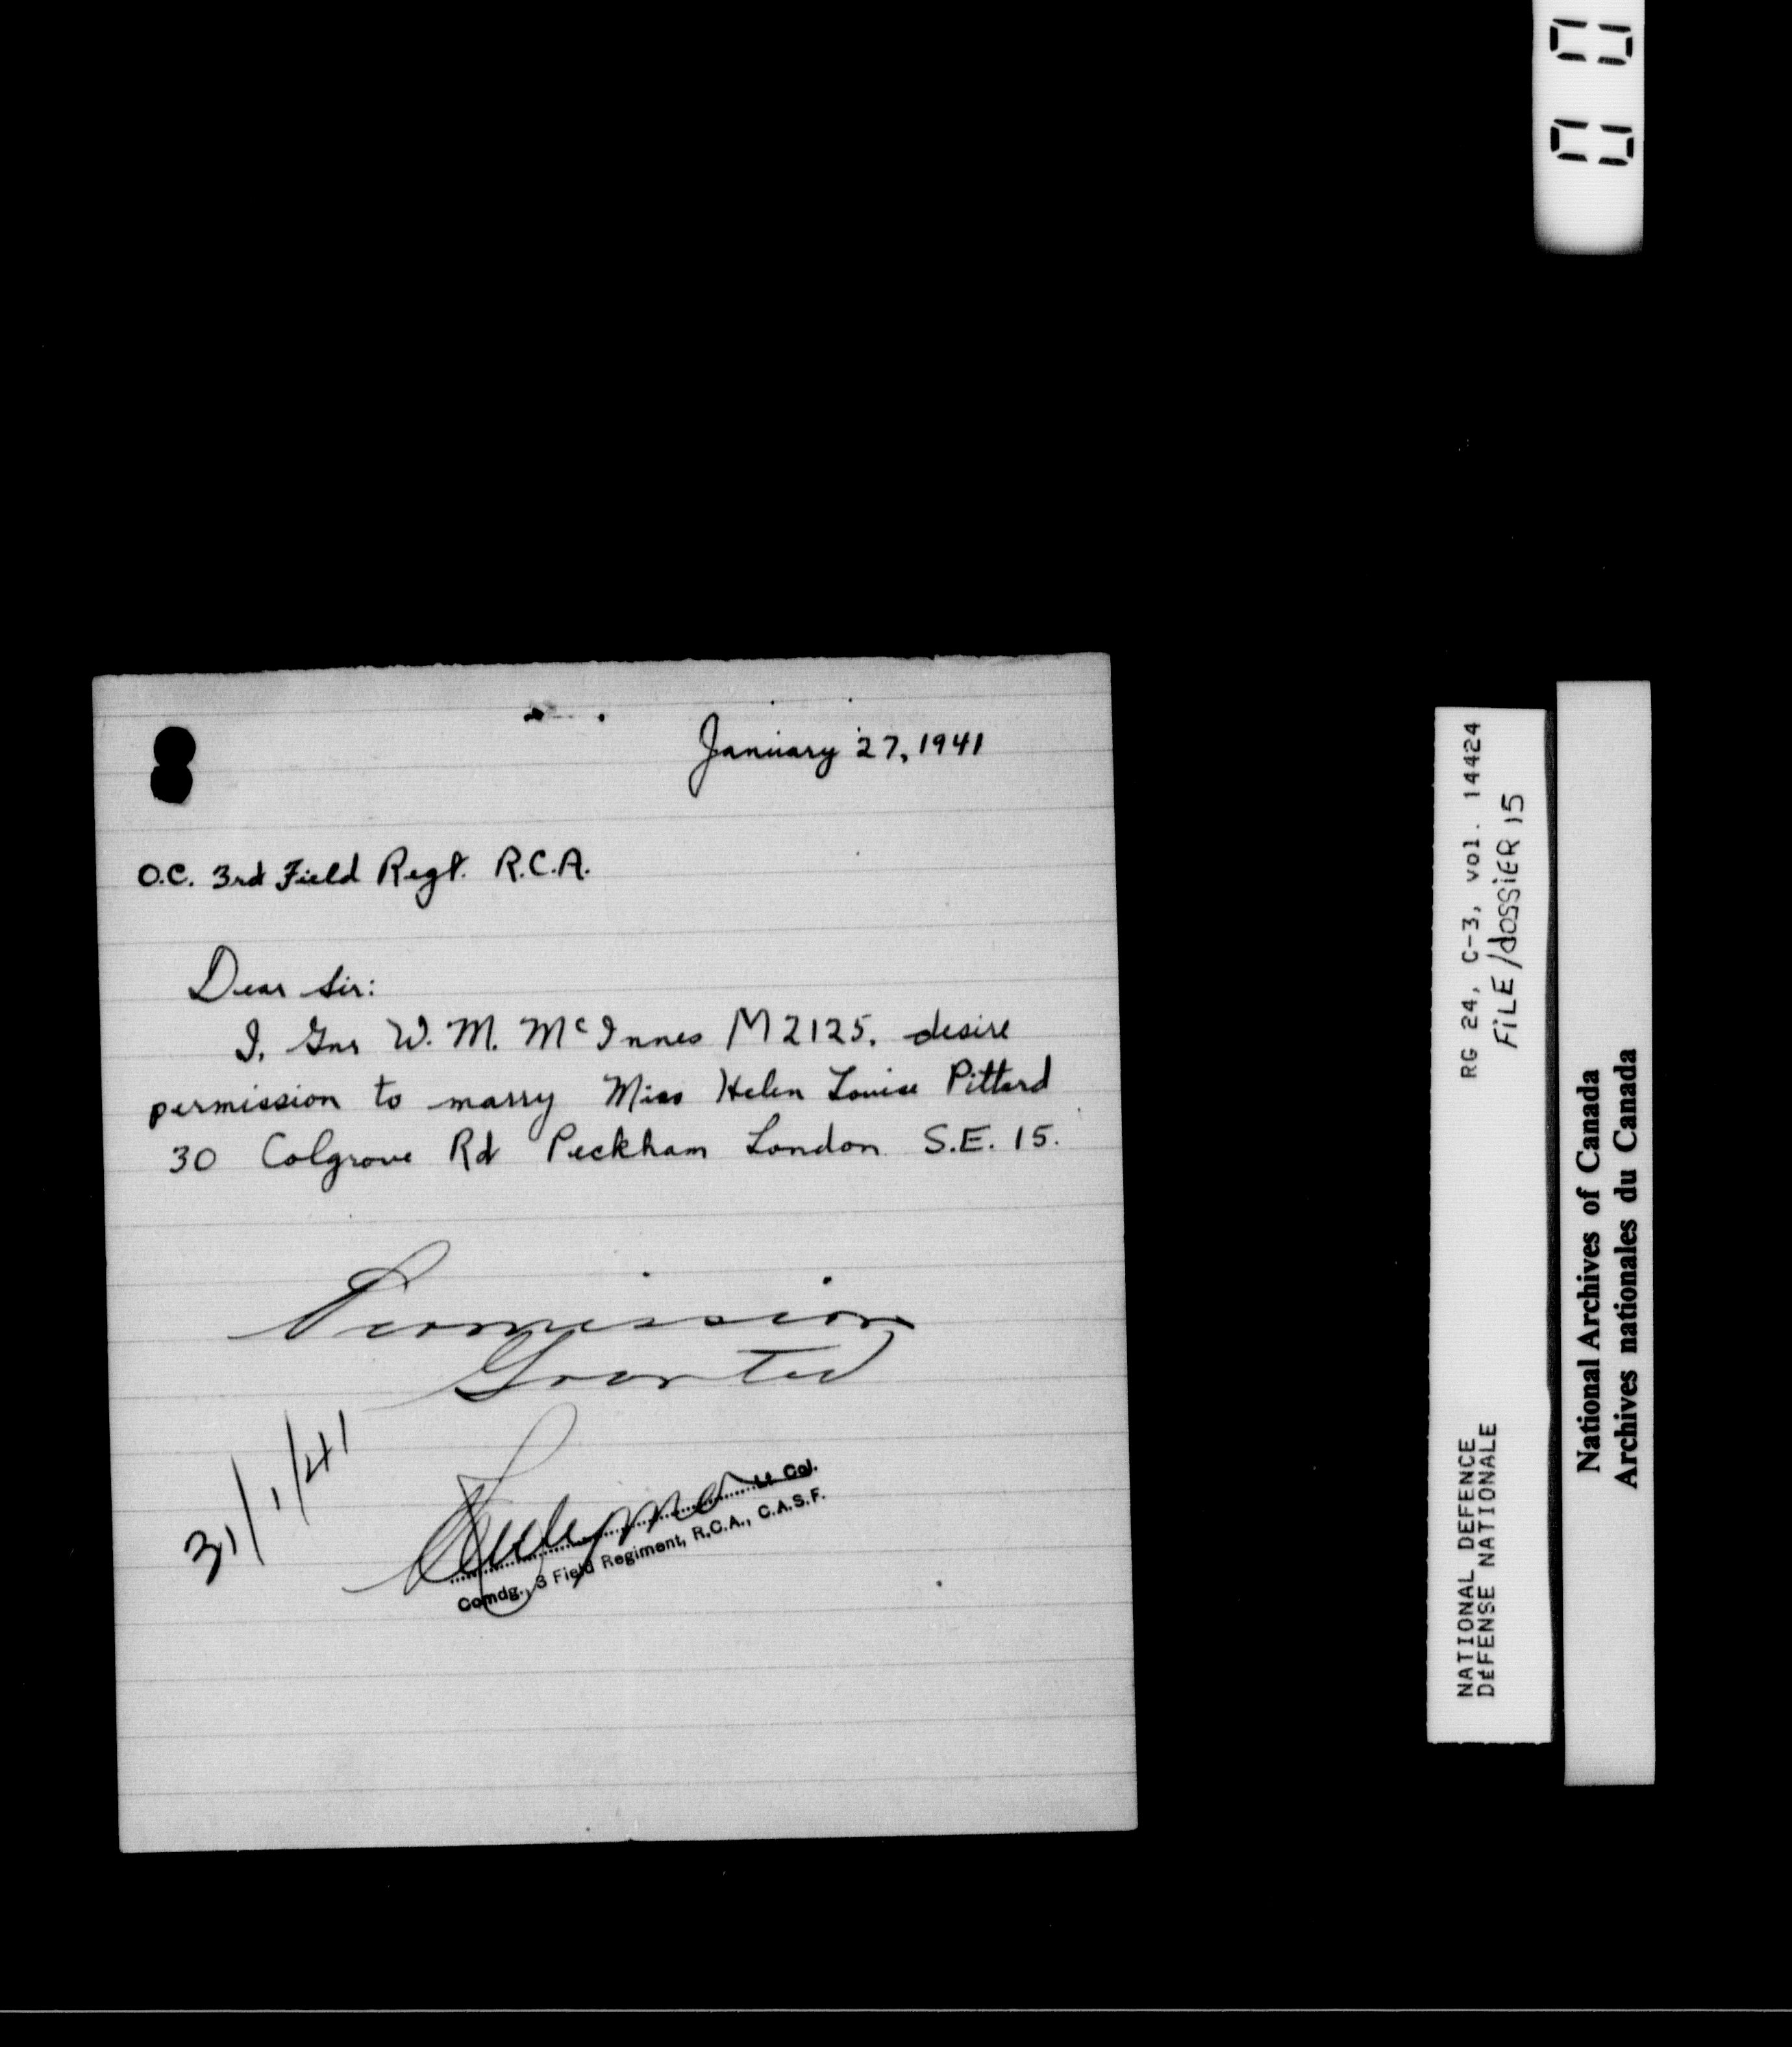 January 27, 1941
O.C. 3rd Field Regt. R.C.A.
Dear Sir:
I, Gnr W. M. McInnes M2125, desire
permission to marry Miss Helen Louise Pittard
30 Colgrove Rd Peckham London S.E. 15.
Permission
Granted
31/1/41
Lt Col.
Comdg., 3 Field Regiment, R.C.A., C.A.S.F.
RG 24, C-3, vol. 14424
FiLE/dOSSiER 15
NATIONAL DEFENCE
DéFENSE NATIONALE
National Archives of Canada
Archives nationales du Canada